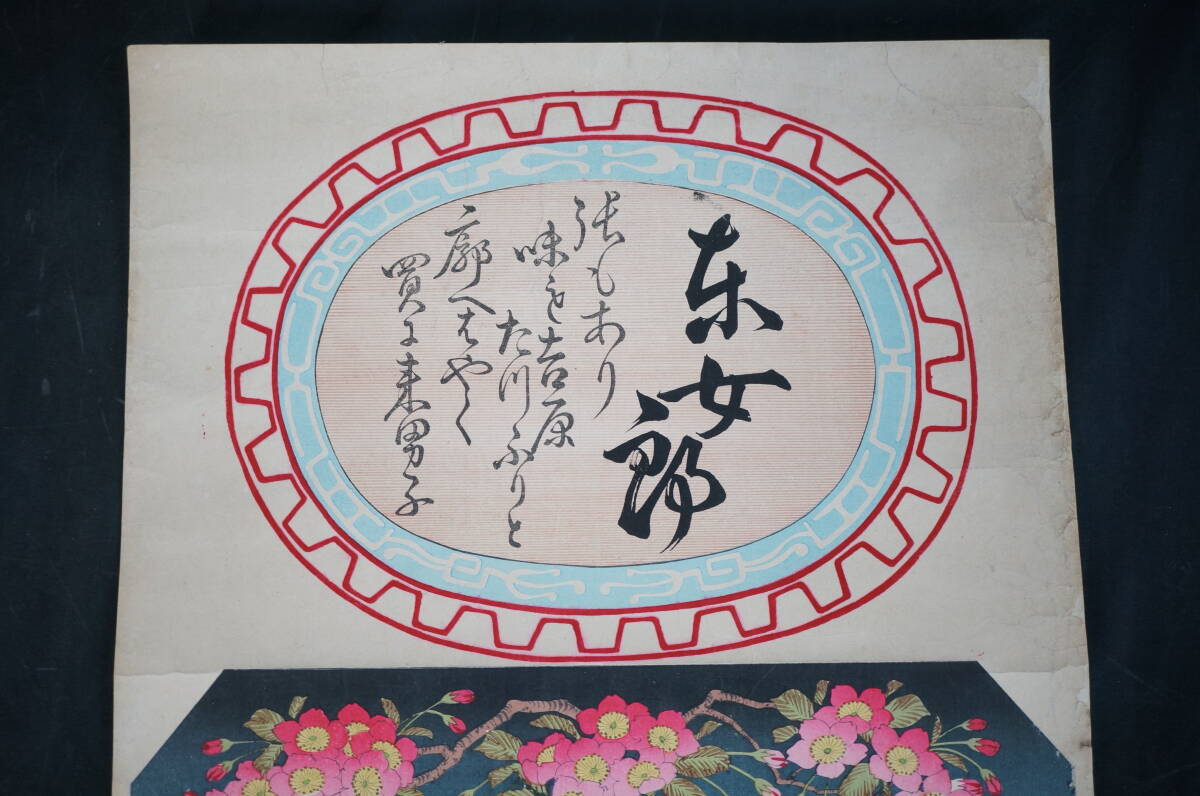 东女郎
張もあり
味も吉原
たつふりと
廓へはやく
買に来男子